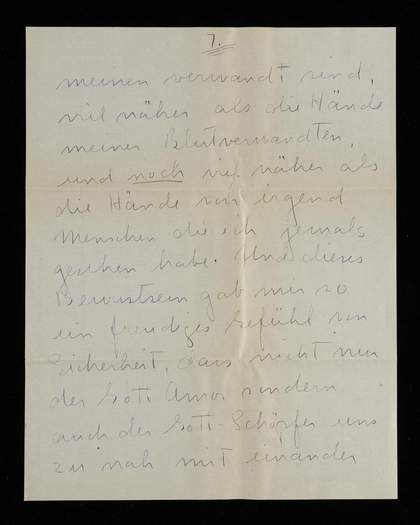 7.
meinen verwandt sind,
viel näher als die Hände
meiner Blutverwandten,
und noch viel näher als
die Hände von irgend
Menschen die ich jemals
gesehen habe. Und dieses
Bewustsein gab mir so
ein freudiges Gefühl von
Sicherheit, dass nicht nur
der Gott Amor sondern
auch der Gott-Schöpfer uns
zu nah mit einander